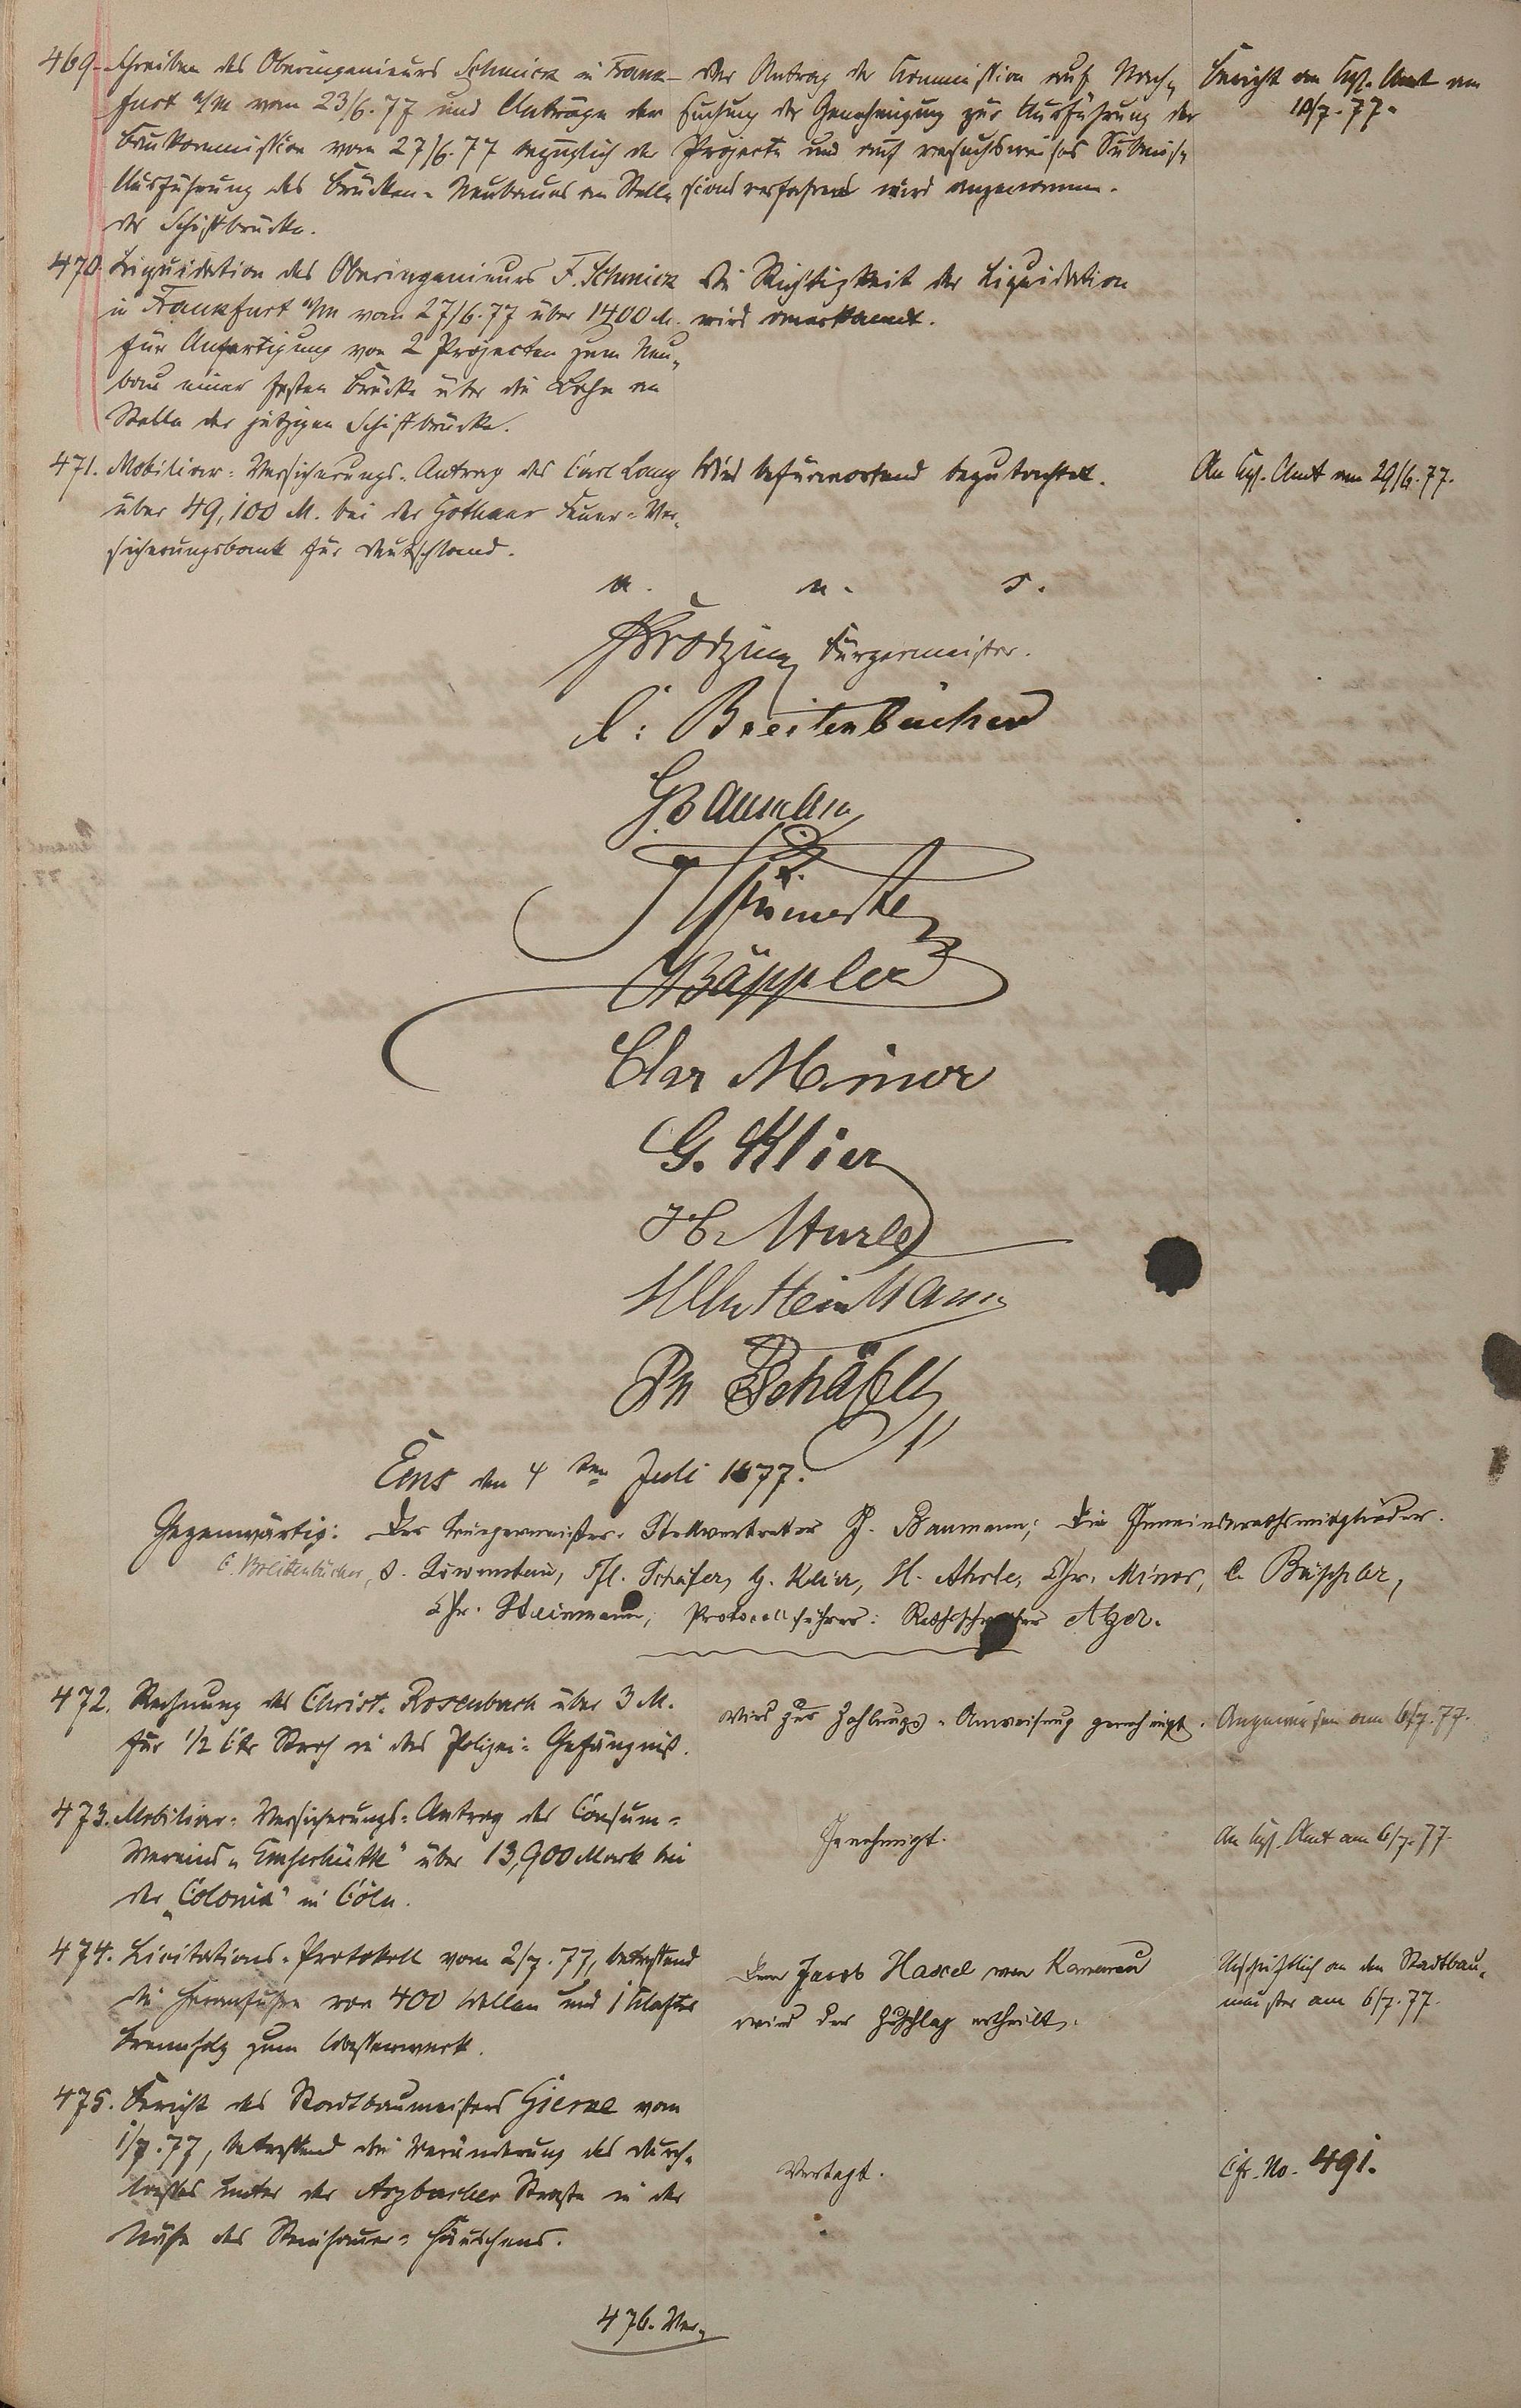 469. Schreiben des Oberingenieurs Schmick in Frank-
furt a/M vom 23/6.77 und Anträge der
Baukommission vom 27/6.77 bezüglich der
Ausführung des Brücken-Neubaues an Stelle
der Schiffbrücke.
Der Antrag der Kommission auf Nach-
suchung der Genehmigung zur Ausführung der
Projecte und auf versuchsweises Submis-
sionsverfahren wird angenommen.
Bericht an Kgl. Amt am
10/7.77.
470. Liquidation des Oberingenieurs F. Schmick
in Frankfurt a/M vom 27/6.77 über 1400 M.
für Anfertigung von 2 Projecten zum Neu-
bau einer festen Brücke über die Lahn an
Stelle der jetzigen Schiffbrücke.
Die Richtigkeit der Liquidation
wird anerkannt.
471. Mobiliar-Versicherungs-Antrag des Carl Lang
über 49,100 M. bei der Gothaer Feuer-Ver-
sicherungsbank für Deutschland.
Wird befürwortend begutachtet.
An Kgl. Amt am 29/6.77.
Bürgermeister.
C. Breitenbücher
G Baumann
C Bäppler
Chr Minor
G. Klier
Steinmann
Ph Schäfer
Ems den 4ten Juli 1877.
Gegenwärtig: Der Bürgermeister-Stellvertreter G. Baumann; die Gemeinderathsmitglieder.
C. Breitenbücher, S. Löwenstein, Ph. Schäfer, G. Klier, H. Chr. Minor, C. Bäppler,
Chr. Steinmann; Protocollführer: Rathsschreiber
472. Rechnung des Christ. Rosenbach über 3 M.
für 1/2 Ctr Stroh in das Polizei-Gefängniß.
Wird zur Zahlungs-Anweisung genehmigt.
Angewiesen am 6/7.77.
473. Mobiliar-Versicherungs-Antrag des Consum-
Vereins „Emserhütte" über 13,900 Mark bei
der „Colonia" in Cöln.
Genehmigt.
An Kgl. Amt am 6/7.77.
474. Licitations-Protokoll vom 2/7.77, betreffend
die Heranfuhr von 400 Wellen und 1 Klafter
Brennholz zum Wasserwerk.
Dem Jacob von Kemmenau
wird der Zuschlag ertheilt.
Abschriftlich an den Stadtbau-
meister am 6/7.77.
475. Bericht des Stadtbaumeisters vom
1/7.77, betreffend die Veränderung des Durch-
lasses unter der Arzbacher Straße in der
Nähe des Steinhauer-Häuschens.
Vertagt.
Cfr. No. 491.
476. Ver-